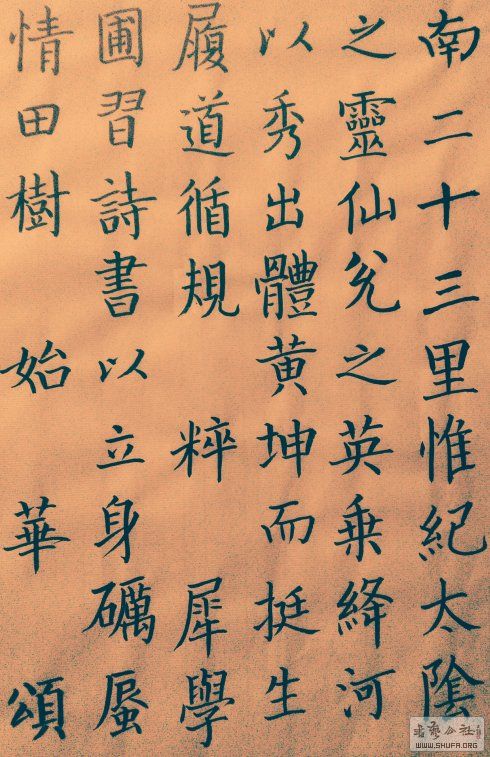 南二十三里惟紀太陰
之靈仙兊之英乗絳河
以秀出體黄坤而挺生
履道循規 粹 犀學
圃習詩書以立身礪蜃
情田樹 始 華 頌
WWW.SHUFA.ORG